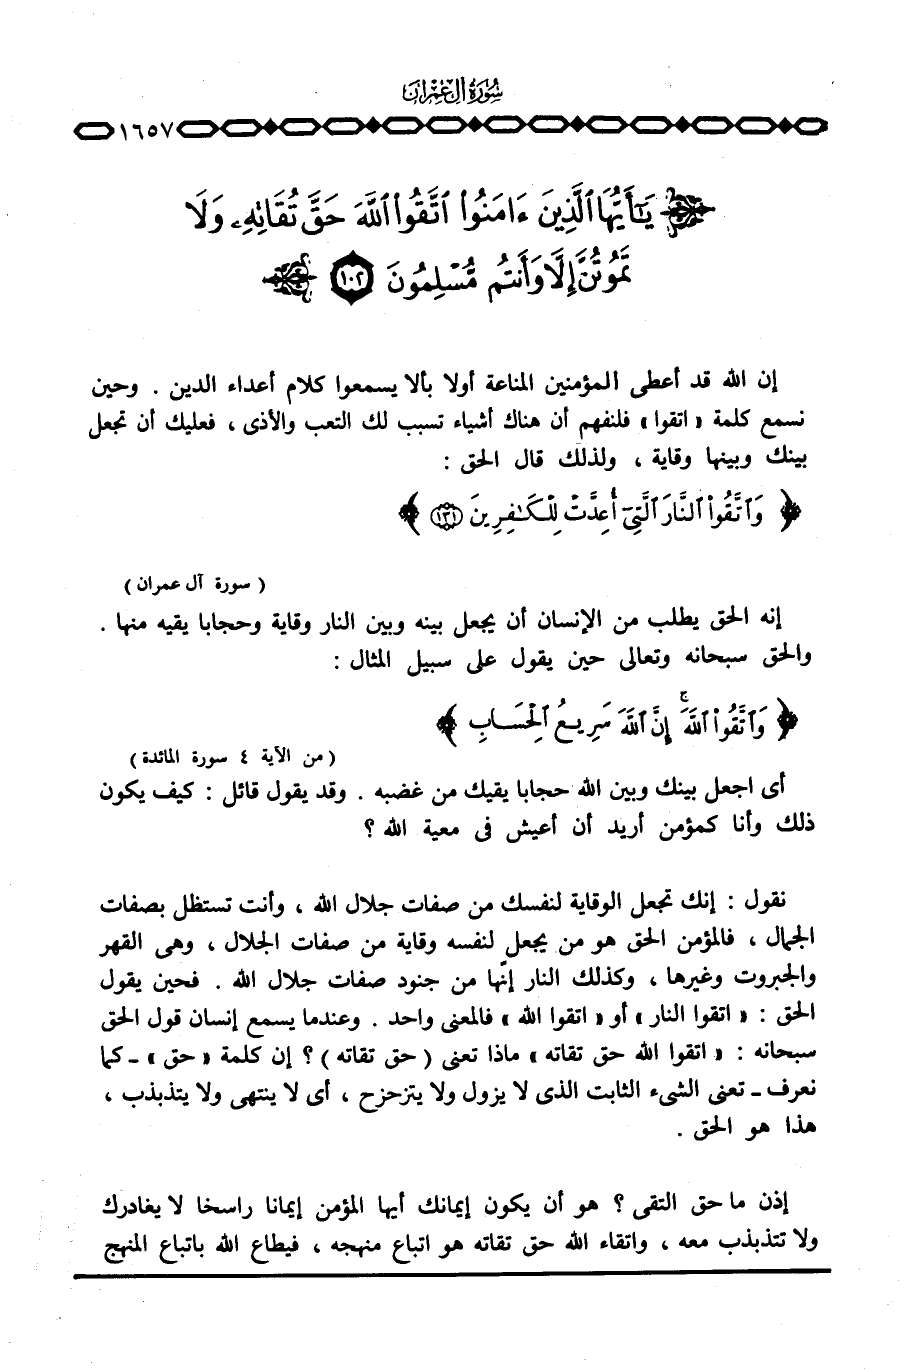 سُورَةُ آلِ عِمْرَان
١٦٥٧
يَٰٓأَيُّهَا ٱلَّذِينَ ءَامَنُوا۟ ٱتَّقُوا۟ ٱللَّهَ حَقَّ تُقَاتِهِۦ وَلَا
تَمُوتُنَّ إِلَّا وَأَنتُم مُّسْلِمُونَ ١٠٢
إن الله قد أعطى المؤمنين المناعة أولا بألا يسمعوا كلام أعداء الدين . وحين
نسمع كلمة « اتقوا » فلنفهم أن هناك أشياء تسبب لك التعب والأذى ، فعليك أن تجعل
بينك وبينها وقاية ، ولذلك قال الحق :
﴿ وَٱتَّقُوا۟ ٱلنَّارَ ٱلَّتِىٓ أُعِدَّتْ لِلْكَٰفِرِينَ ١٣١ ﴾
( سورة آل عمران )
إنه الحق يطلب من الإنسان أن يجعل بينه وبين النار وقاية وحجابا يقيه منها .
والحق سبحانه وتعالى حين يقول على سبيل المثال :
﴿ وَٱتَّقُوا۟ ٱللَّهَ ۚ إِنَّ ٱللَّهَ سَرِيعُ ٱلْحِسَابِ ﴾
( من الآية ٤ سورة المائدة )
أى اجعل بينك وبين الله حجابا يقيك من غضبه . وقد يقول قائل : كيف يكون
ذلك وأنا كمؤمن أريد أن أعيش فى معية الله ؟
نقول : إنك تجعل الوقاية لنفسك من صفات جلال الله ، وأنت تستظل بصفات
الجمال ، فالمؤمن الحق هو من يجعل لنفسه وقاية من صفات الجلال ، وهى القهر
والجبروت وغيرها ، وكذلك النار إنّها من جنود صفات جلال الله . فحين يقول
الحق : « اتقوا النار » أو « اتقوا الله » فالمعنى واحد . وعندما يسمع إنسان قول الحق
سبحانه : « اتقوا الله حق تقاته » ماذا تعنى ( حق تقاته ) ؟ إن كلمة « حق » ـ كما
نعرف ـ تعنى الشىء الثابت الذى لا يزول ولا يتزحزح ، أى لا ينتهى ولا يتذبذب ،
هذا هو الحق .
إذن ما حق التقى ؟ هو أن يكون إيمانك أيها المؤمن إيمانا راسخا لا يغادرك
ولا تتذبذب معه ، واتقاء الله حق تقاته هو اتباع منهجه ، فيطاع الله باتباع المنهج